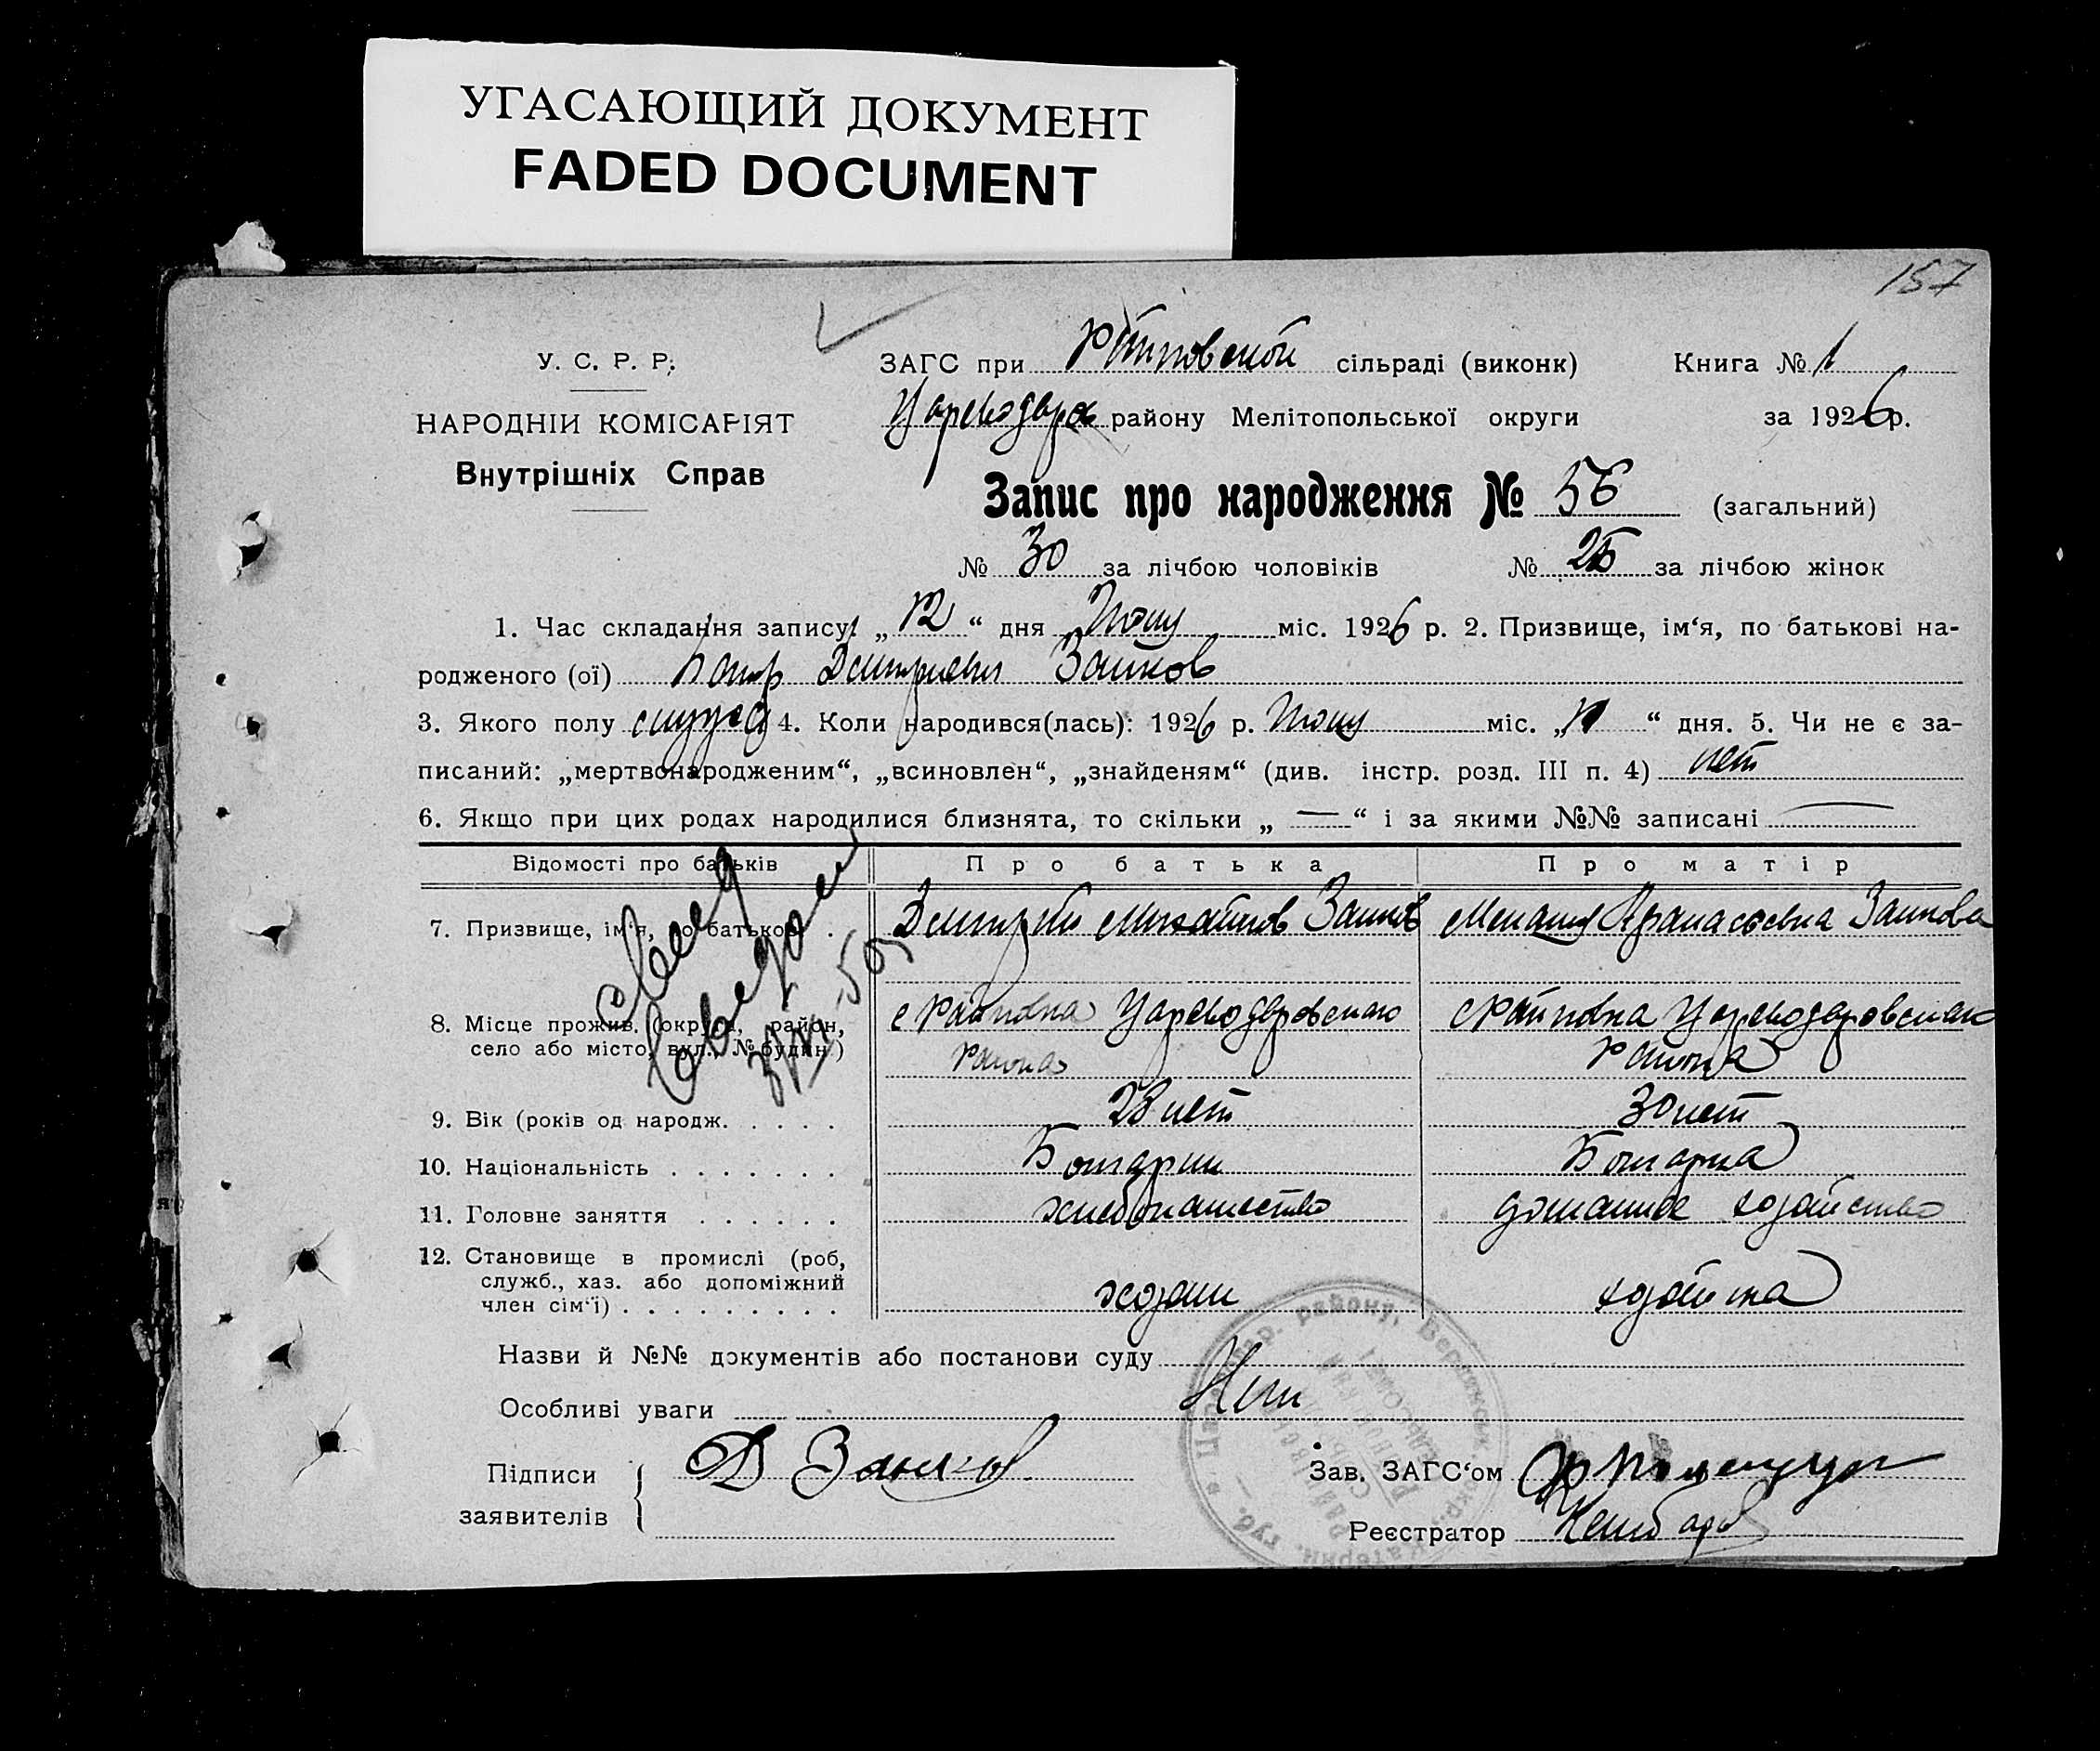 УГАСАЮЩИЙ ДОКУМЕНТ
FADED DOCUMENT
157
У. С. Р. Р.
НАРОДНІЙ КОМІСАРІЯТ
Внутрішніх Справ
ЗАГС при Райновской сільраді (виконк) Книга № 1
Цареводар району Мелітопольської округи за 1926 р.
Запис про народження № 56 (загальний)
№ 30 за лічбою чоловіків № 26 за лічбою жінок
1. Час складання запису: „12“ дня міс. 1926 р. 2. Призвище, ім‘я, по батькові на-
родженого (ої) Дмитриевич Зайков
3. Якого полу 4. Коли народився(лась): 1926 р. міс. „ “ дня. 5. Чи не є за-
писаний: „мертвонародженим“, „всиновлен“, „знайденям“ (див. інстр. розд. III п. 4) нет
6. Якщо при цих родах народилися близнята, то скільки „ — “ і за якими №№ записані —
Відомості про батьків Про батька Про матір
7. Призвище, ім‘я, по батькові . Дмитрий Михайлов Зайков Афанасьевна Зайкова
8. Місце прожив. (округа, район, село або місто, вул., № будин.) с Райновка Цареводаровского района с Райновка Цареводаровского района
9. Вік (років од народж. . . . . . 28 лет 30 лет
10. Національність . . . . . . . Болгарин Болгарка
11. Головне заняття . . . . . . хлебопашество домашнее хозяйство
12. Становище в промислі (роб, служб., хаз. або допоміжний член сім‘ї) . . . . . . . . . хозяин хозяйка
Назви й №№ документів або постанови суду
Особливі уваги Нет
Підписи заявителів Д Зайков
Зав. ЗАГС‘ом
Реєстратор